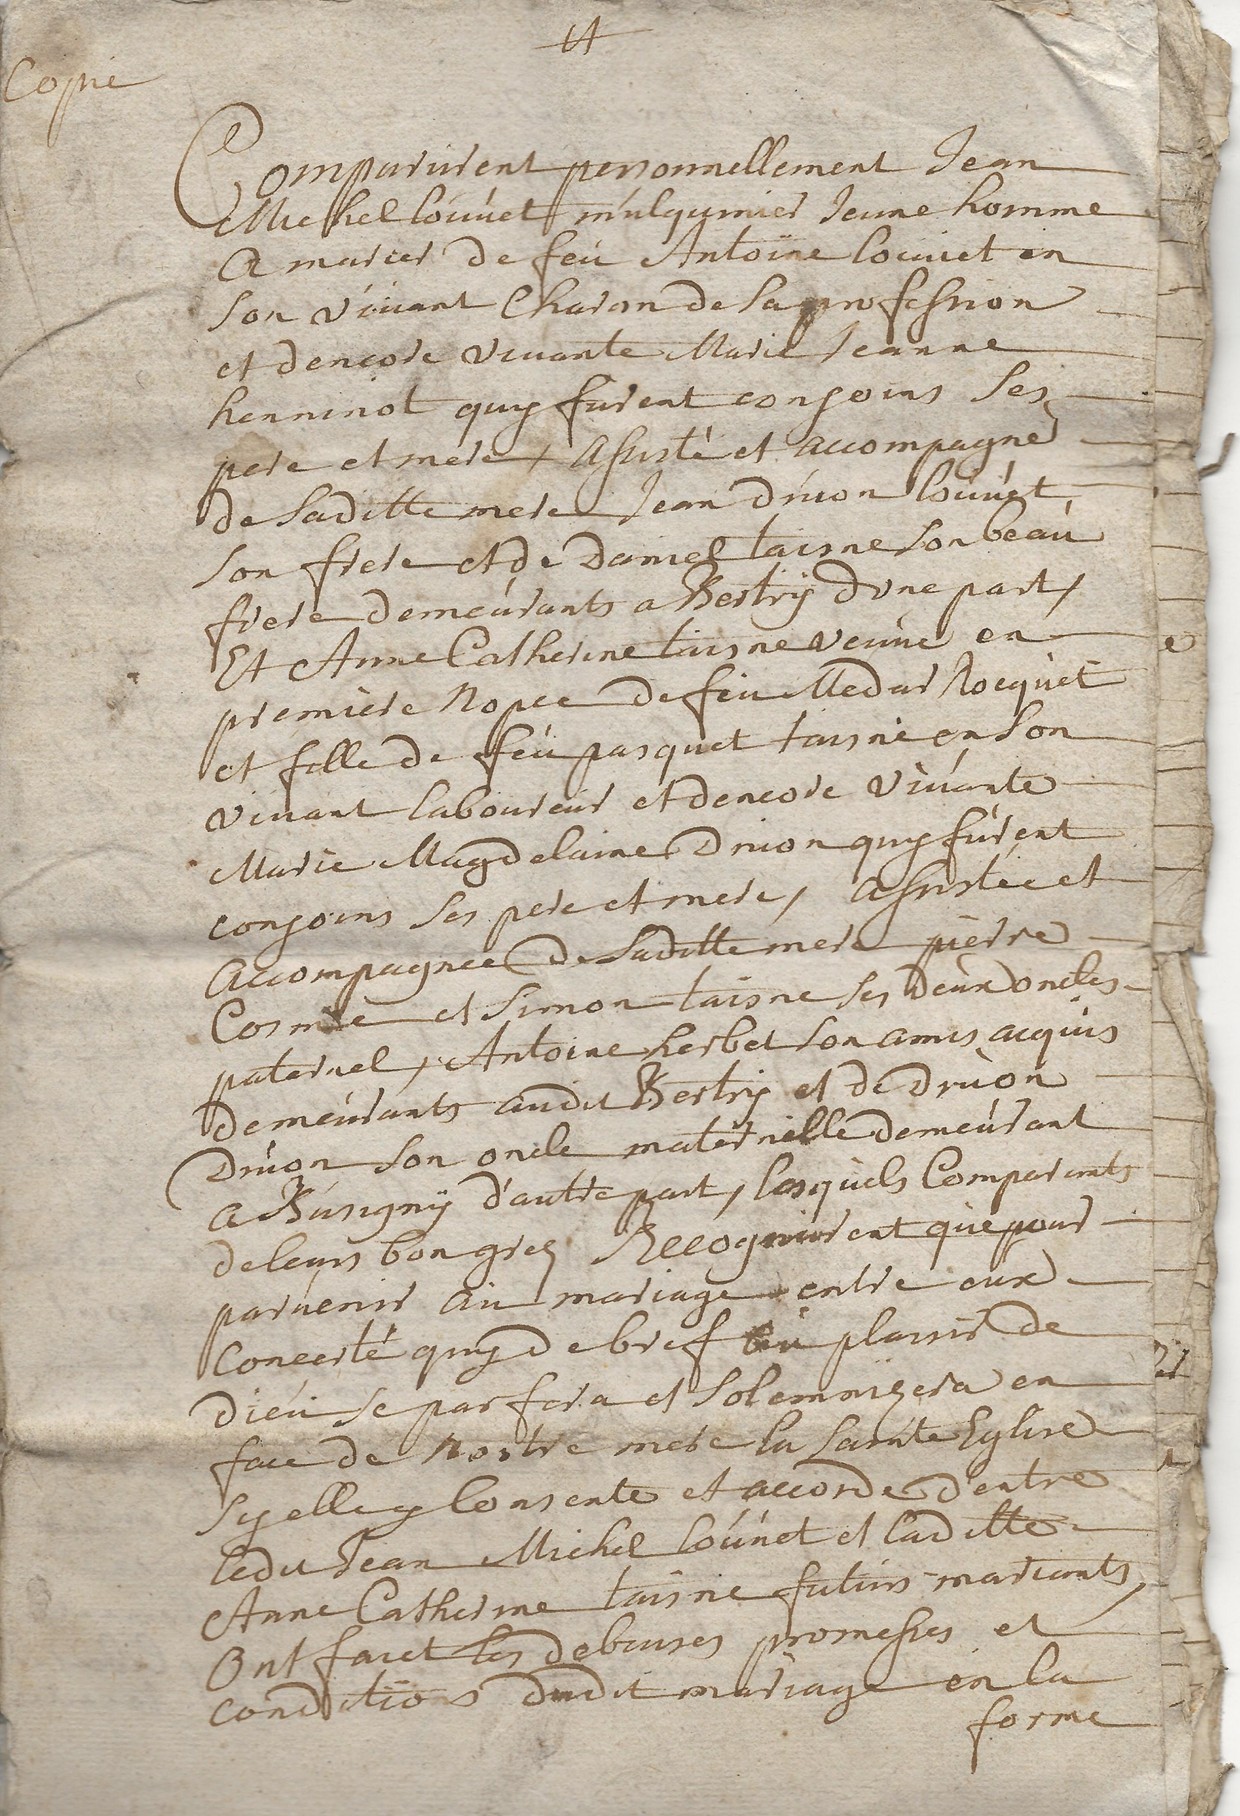 Copie
Comparurent personnellement Jean
Michel Louvet mulquinier Jeune homme
A marier de feu Antoine louvet en
Son vivant Charon de Sa profession
et dencore vivante Marie Jeanne
henninot quy furent conjoins Ses
pere et mere, assisté et accompagné
de Saditte mere Jean druon louvet
Son frere et de Daniel taisne Son beau
frere demeurants a Bertry d'une part,
Et Anne Catherine taisne veuve en
premiere nopce de feu Medar Rocquet
et fille de feu pasquet taisne en Son
vivant laboureur et dencore vivante
Marie Magdelaine Druon quy furent
conjoins Ses pere et mere, assistée et
accompagnee de Saditte mere pierre
Cosme et Simon taisne Ses deux oncles
paternel, Antoine herbet Son amis acquis
demeurants audit Bertry et de Druon
Druon Son oncle maternelle demeurant
a Busigny d'autre part, lesquels Comparants
de leurs bon grez Recognurent que pour
parvenir au mariage entre eux
Concerté quy de bref au plaisir de
dieu Se parfera et Solemnizera en
face de nostre mere la Sainte Eglise
Sy elle y Consente et accorde d'entre
ledit Jean Michel louvet et laditte
Anne Catherine taisne futurs mariants,
Ont faict les debvises promesses et
conditions dudit mariage en la
forme